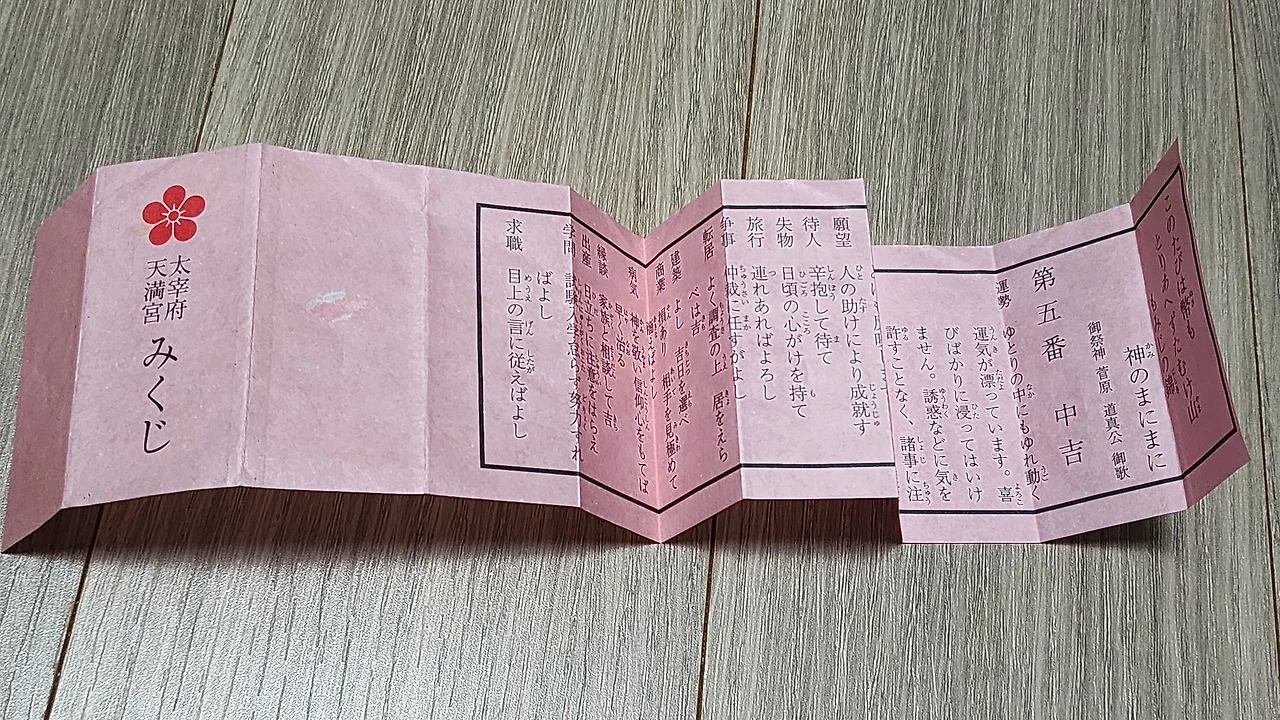 このたびは幣も
とりあへずたむけ山
もみぢの錦
神のまにまに
御祭神 菅原 道真公 御歌
第五番 中吉
運勢 ゆとりの中にもゆれ動く
運気が漂っています。喜
びばかりに浸ってはいけ
ません。誘惑などに気を
許すことなく、諸事に注
願望 人の助けにより成就す
待人 辛抱して待て
失物 日頃の心がけを持て
旅行 連れあればよろし
争事 仲裁に任すがよし
転居 よく調査の上 居をえら
べば吉
建築 よし 吉日を選べ
商業 相手を見極めて
病気 神を敬い信仰心をもてば
早く治る
縁談 家族と相談して吉
出産
学問
ばよし
求職 目上の言に従えばよし
太宰府
天満宮
みくじ